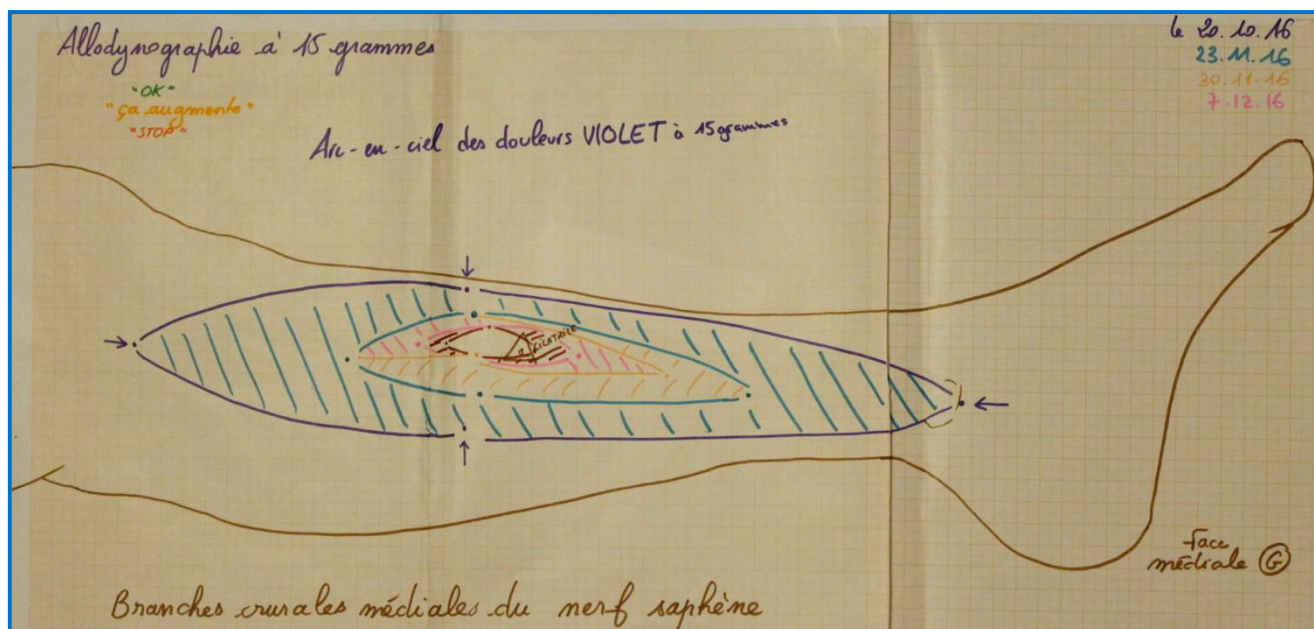 Allodynographie à 15 grammes
"OK"
"ça augmente"
"STOP"
le 20.10.16
23.11.16
30.11.16
7.12.16
Arc-en-ciel des douleurs VIOLET à 15 grammes
CICATRICE
face
médiale G
Branches crurales médiales du nerf saphène